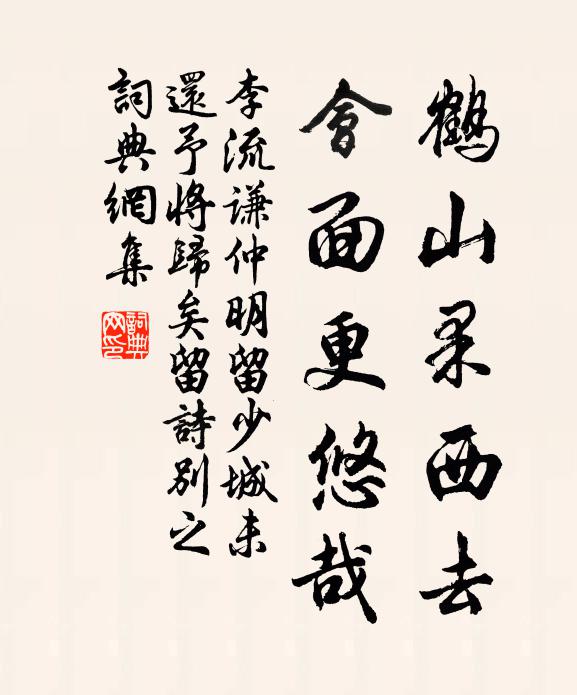 鶴山果西去
會面更悠哉
李流謙仲明留少城未
還予將歸矣留詩別之
詞典網集
詞典網印